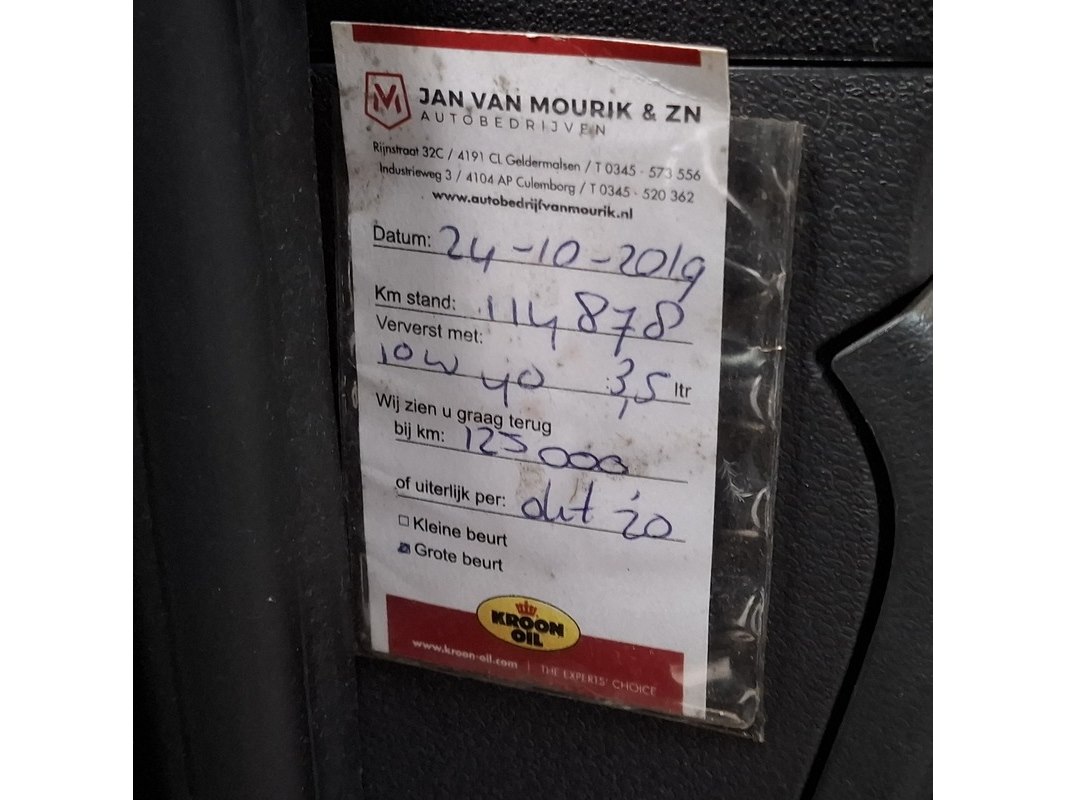 JAN VAN MOURIK & ZN
AUTOBEDRIJVEN
Rijnstraat 32C / 4191 CL Geldermalsen / T 0345 - 573 556
Industrieweg 3 / 4104 AP Culemborg / T 0345 - 520 362
www.autobedrijfvanmourik.nl
Datum: 24-10-2019
Km stand: 114878
Ververst met:
10W40 3,5 ltr
Wij zien u graag terug
bij km: 125000
of uiterlijk per: okt '20
Kleine beurt
Grote beurt
KROON
OIL
www.kroon-oil.com | THE EXPERTS' CHOICE